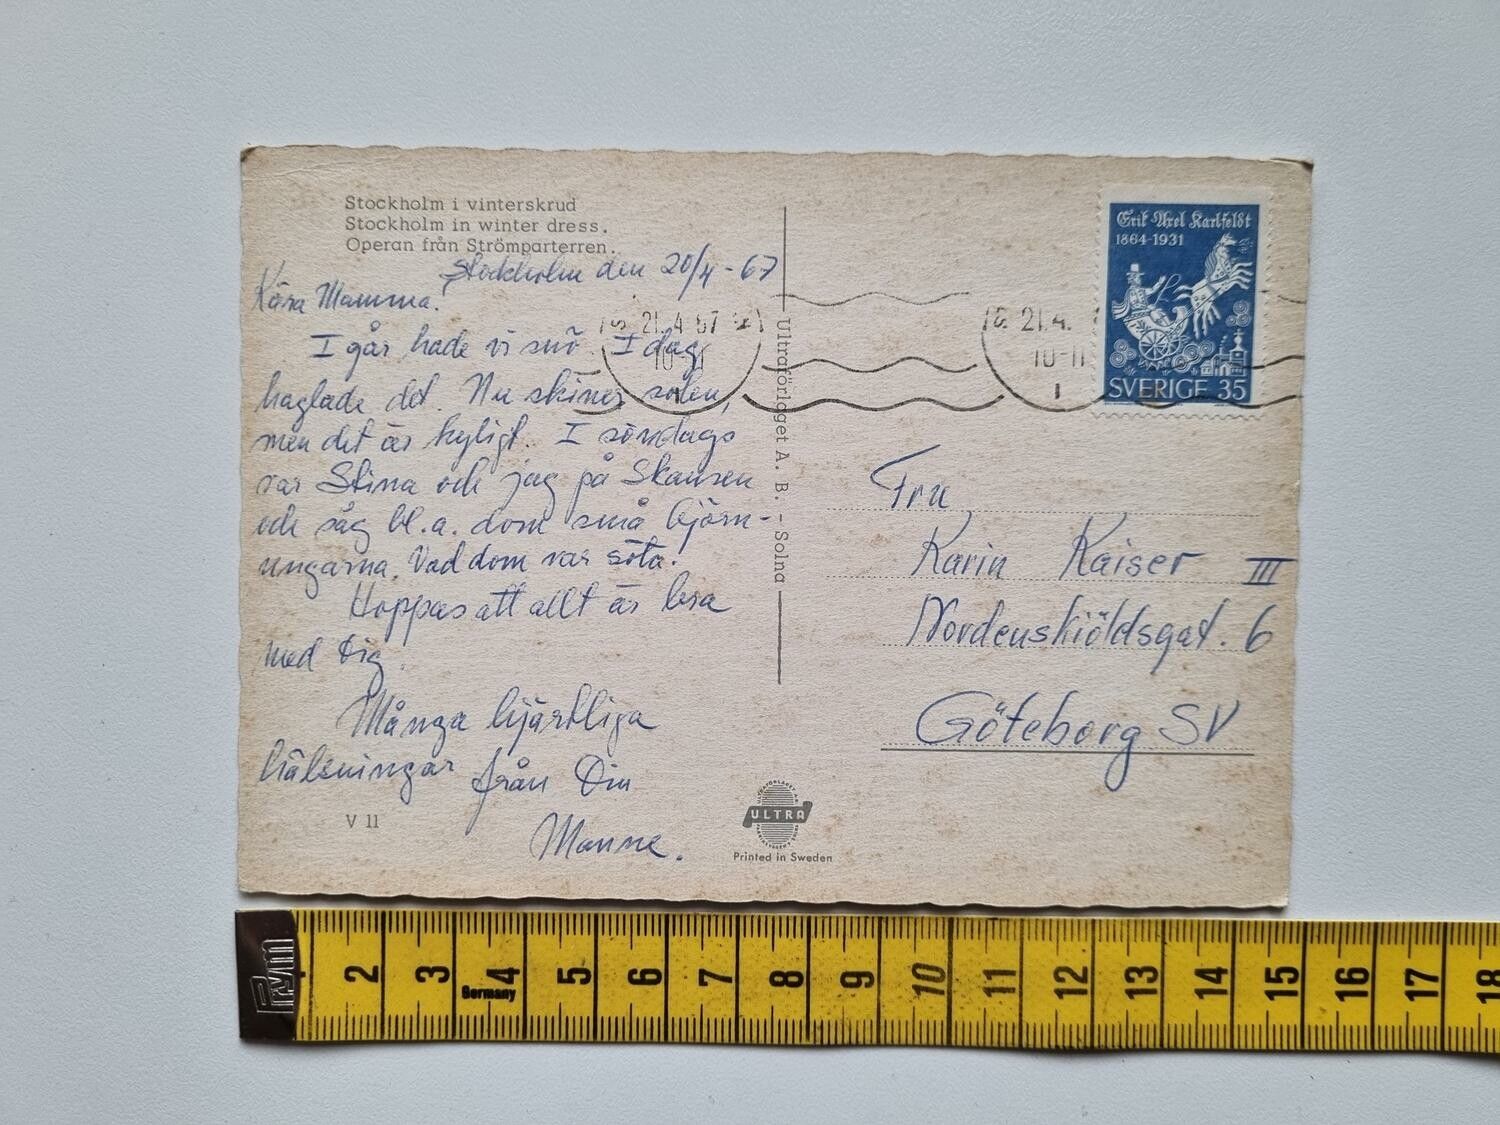 Stockholm i vinterskrud
Stockholm in winter dress.
Operan från Strömparterren.
Stockholm den 20/4-67
Kära Mamma!
I går hade vi snö. I dag
haglade det. Nu skiner solen,
men det är kyligt. I söndags
var Stina och jag på Skansen
och såg bl.a. dom små björn-
ungarna. Vad dom var söta.
Hoppas att allt är bra
med Dig.
Många hjärtliga
hälsningar från Din
Manne.
V 11
Ultraförlaget A. B. - Solna
ULTRA
Printed in Sweden
21.4 67
10-11
1
21.4.
10-11
1
Erik Axel Karlfeldt
1864-1931
SVERIGE 35
Fru
Karin Kaiser III
Nordenskiöldsgat. 6
Göteborg SV
PYM
2 3 4 5 6 7 8 9 10 11 12 13 14 15 16 17 18
Germany